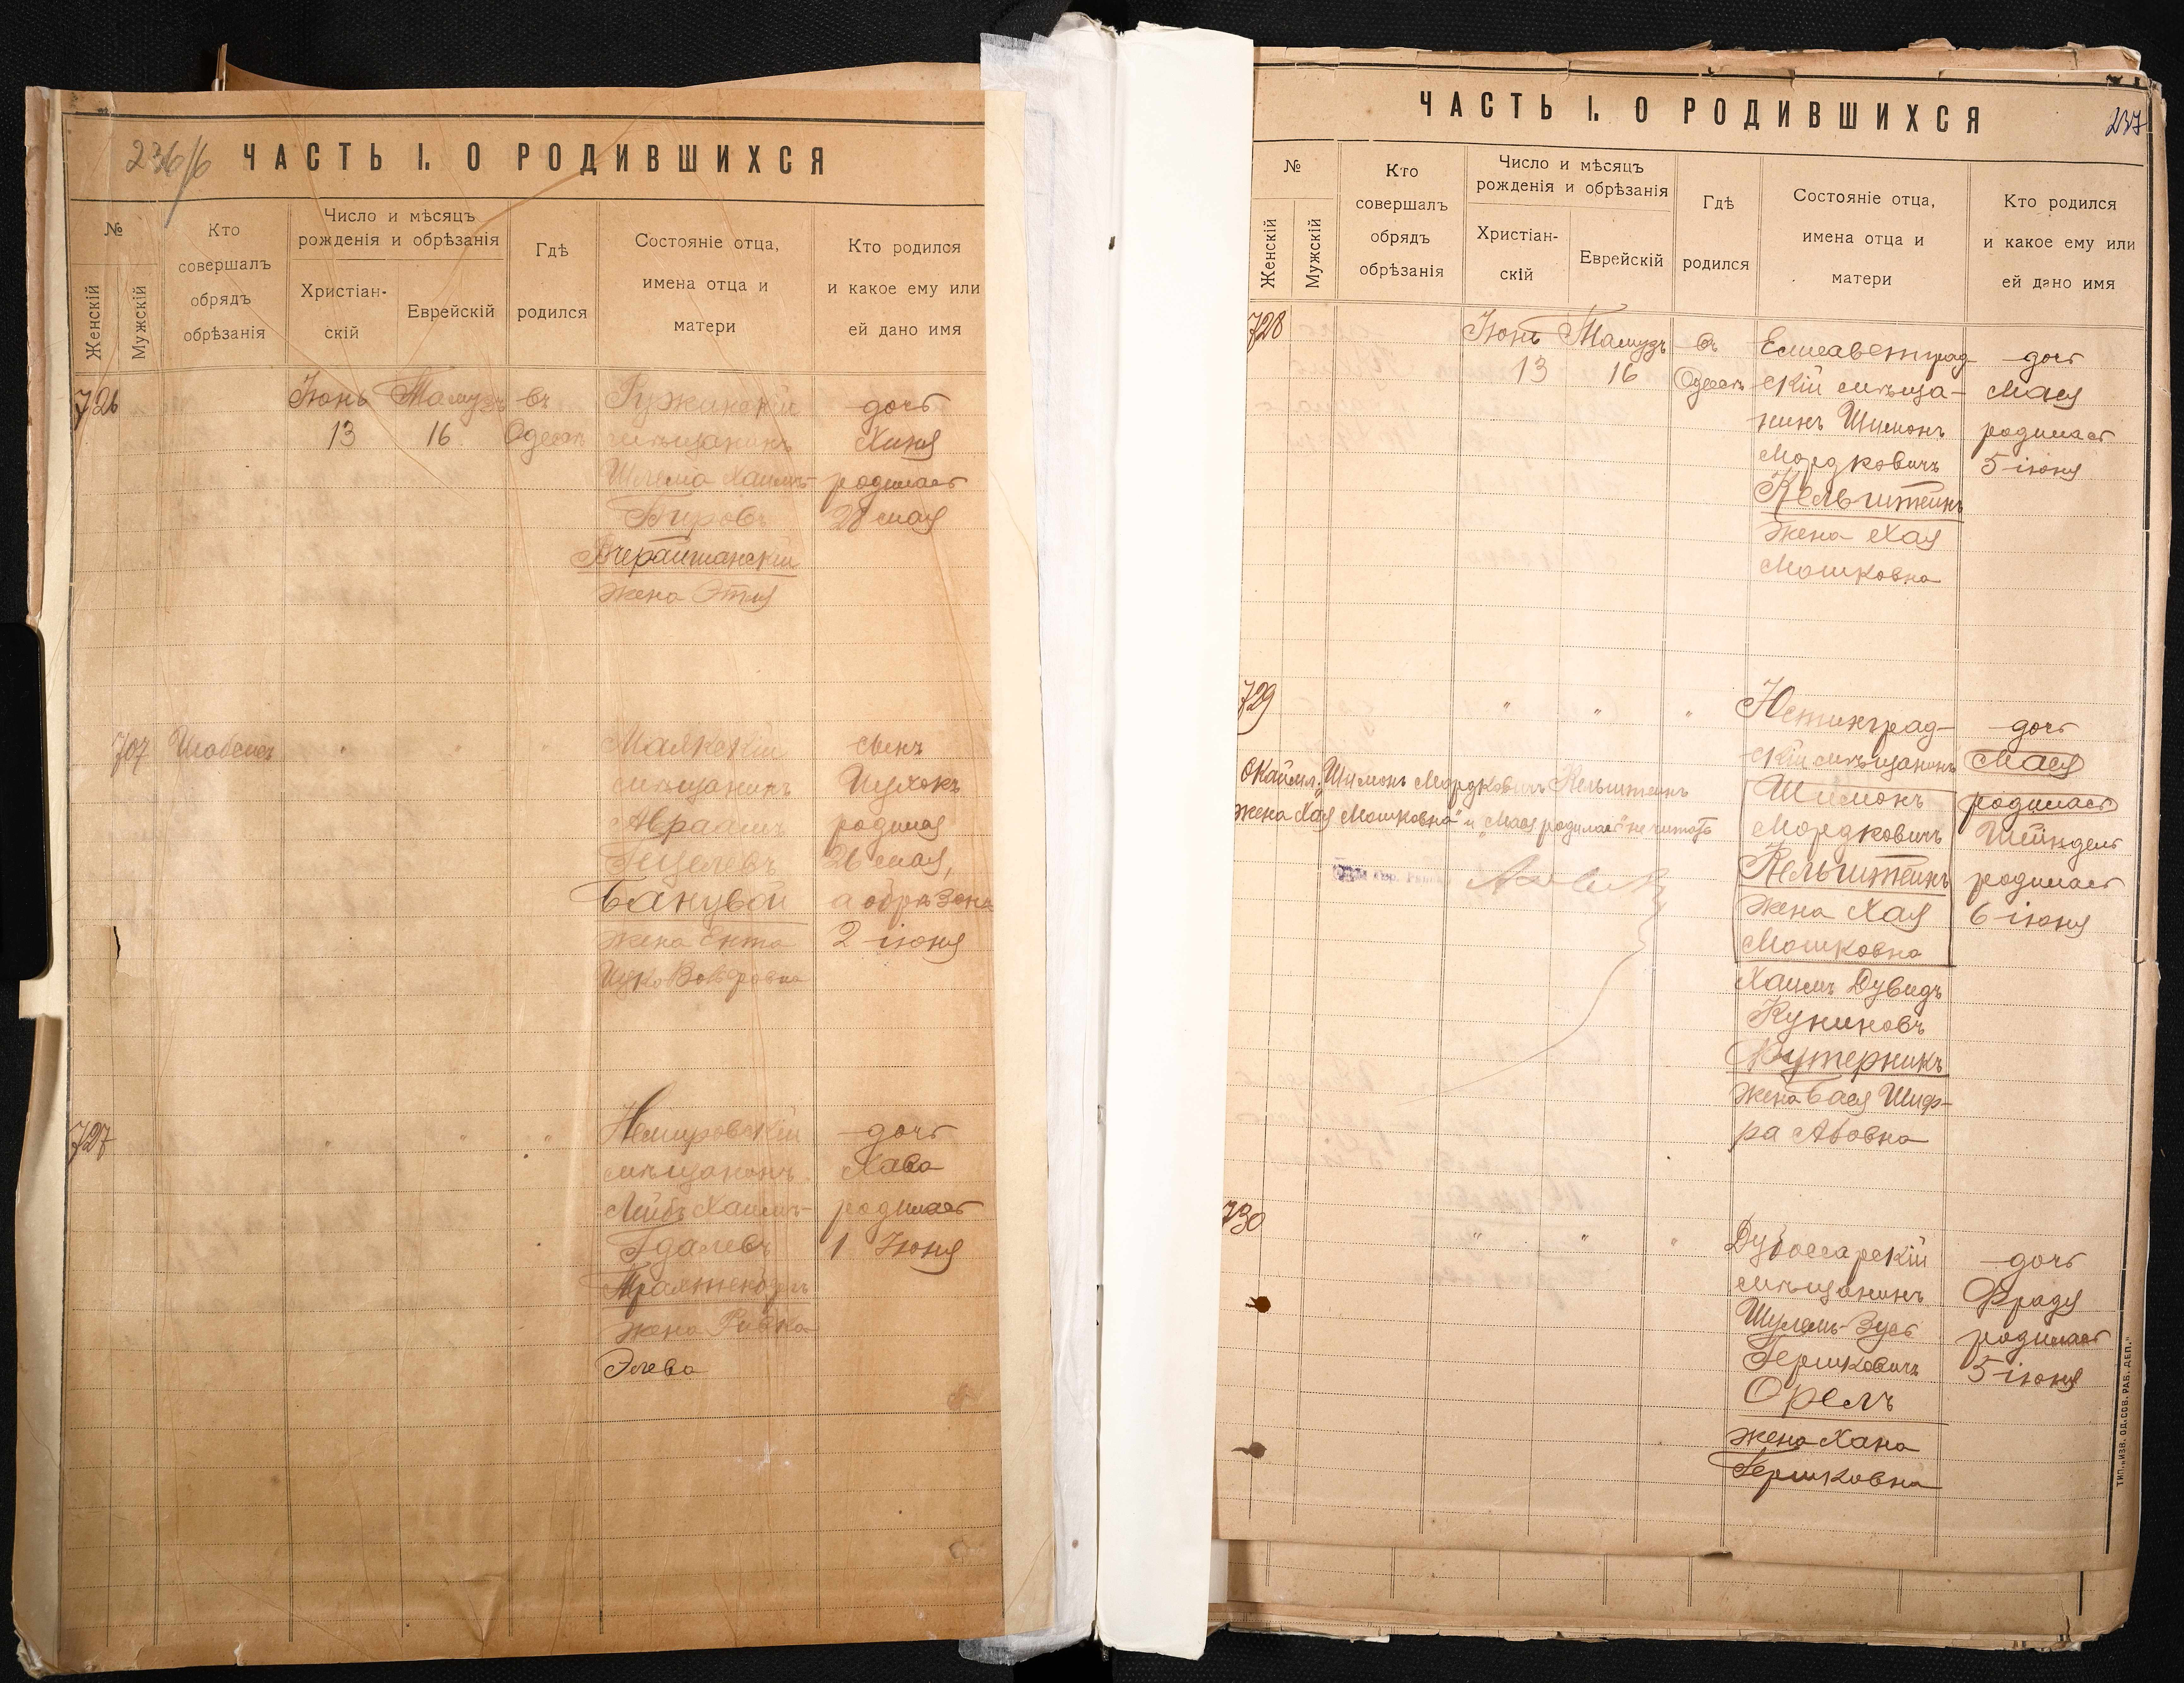 236/б
ЧАСТЬ I. О РОДИВШИХСЯ
№
Женскій
Мужскій
Кто
совершалъ
обрядъ
обрѣзанія
Число и мѣсяцъ
рожденія и обрѣзанія
Христіан-
скій
Еврейскій
Гдѣ
родился
Состояніе отца,
имена отца и
матери
Кто родился
и какое ему или
ей дано имя
726
Іюнь Тамузъ въ
13 16 Одессѣ
Ружинскій
мѣщанинъ
Шлема Хаимъ-
Бировъ
Вчерайшанскій
жена Этля
дочь
Хиня
родилась
28 мая
707
" " "
мѣщанинъ
Авраамъ
Банувой
жена Ента
Вольфовна
сынъ
родился
26 мая,
а обрѣзанъ
2 іюня
727
" " "
Немировскій
мѣщанинъ
Лейбъ Хаимъ-
Гдалевъ
жена Ривка
Элева
дочь
Хава
родилась
1 Іюня
237
ЧАСТЬ I. О РОДИВШИХСЯ
№
Женскій
Мужскій
Кто
совершалъ
обрядъ
обрѣзанія
Число и мѣсяцъ
рожденія и обрѣзанія
Христіан-
скій
Еврейскій
Гдѣ
родился
Состояніе отца,
имена отца и
матери
Кто родился
и какое ему или
ей дано имя
728
Іюнь Тамузъ въ
13 16 Одессѣ
Елисаветград-
скій мѣща-
нинъ Шимонъ
Мордковичъ
Кельштейнъ
жена Хая
Мошковна
дочь
Мася
родилась
5 іюня
729
" " "
скій мѣщанинъ
Шимонъ
Мордковичъ
Кельштейнъ
жена Хая
Мошковна
Хаимъ Дувидъ
Куниновъ
Кутерникъ
жена Бася Шиф-
ра Абовна
дочь
Мася
родилась
Шейндель
родилась
6 іюня
Окаймл: "Шимонъ Мордковичъ Кельштейнъ
жена Хая Мошковна" и "Мася родилась" не читать
730
" " "
Дубоссарскій
мѣщанинъ
Шулемъ-Зусь
Гершковичъ
Орелъ
жена Хана
Гершковна
дочь
Фрадя
родилась
5 іюня
ТИП. „ИЗВ. ОД. СОВ. РАБ. ДЕП."